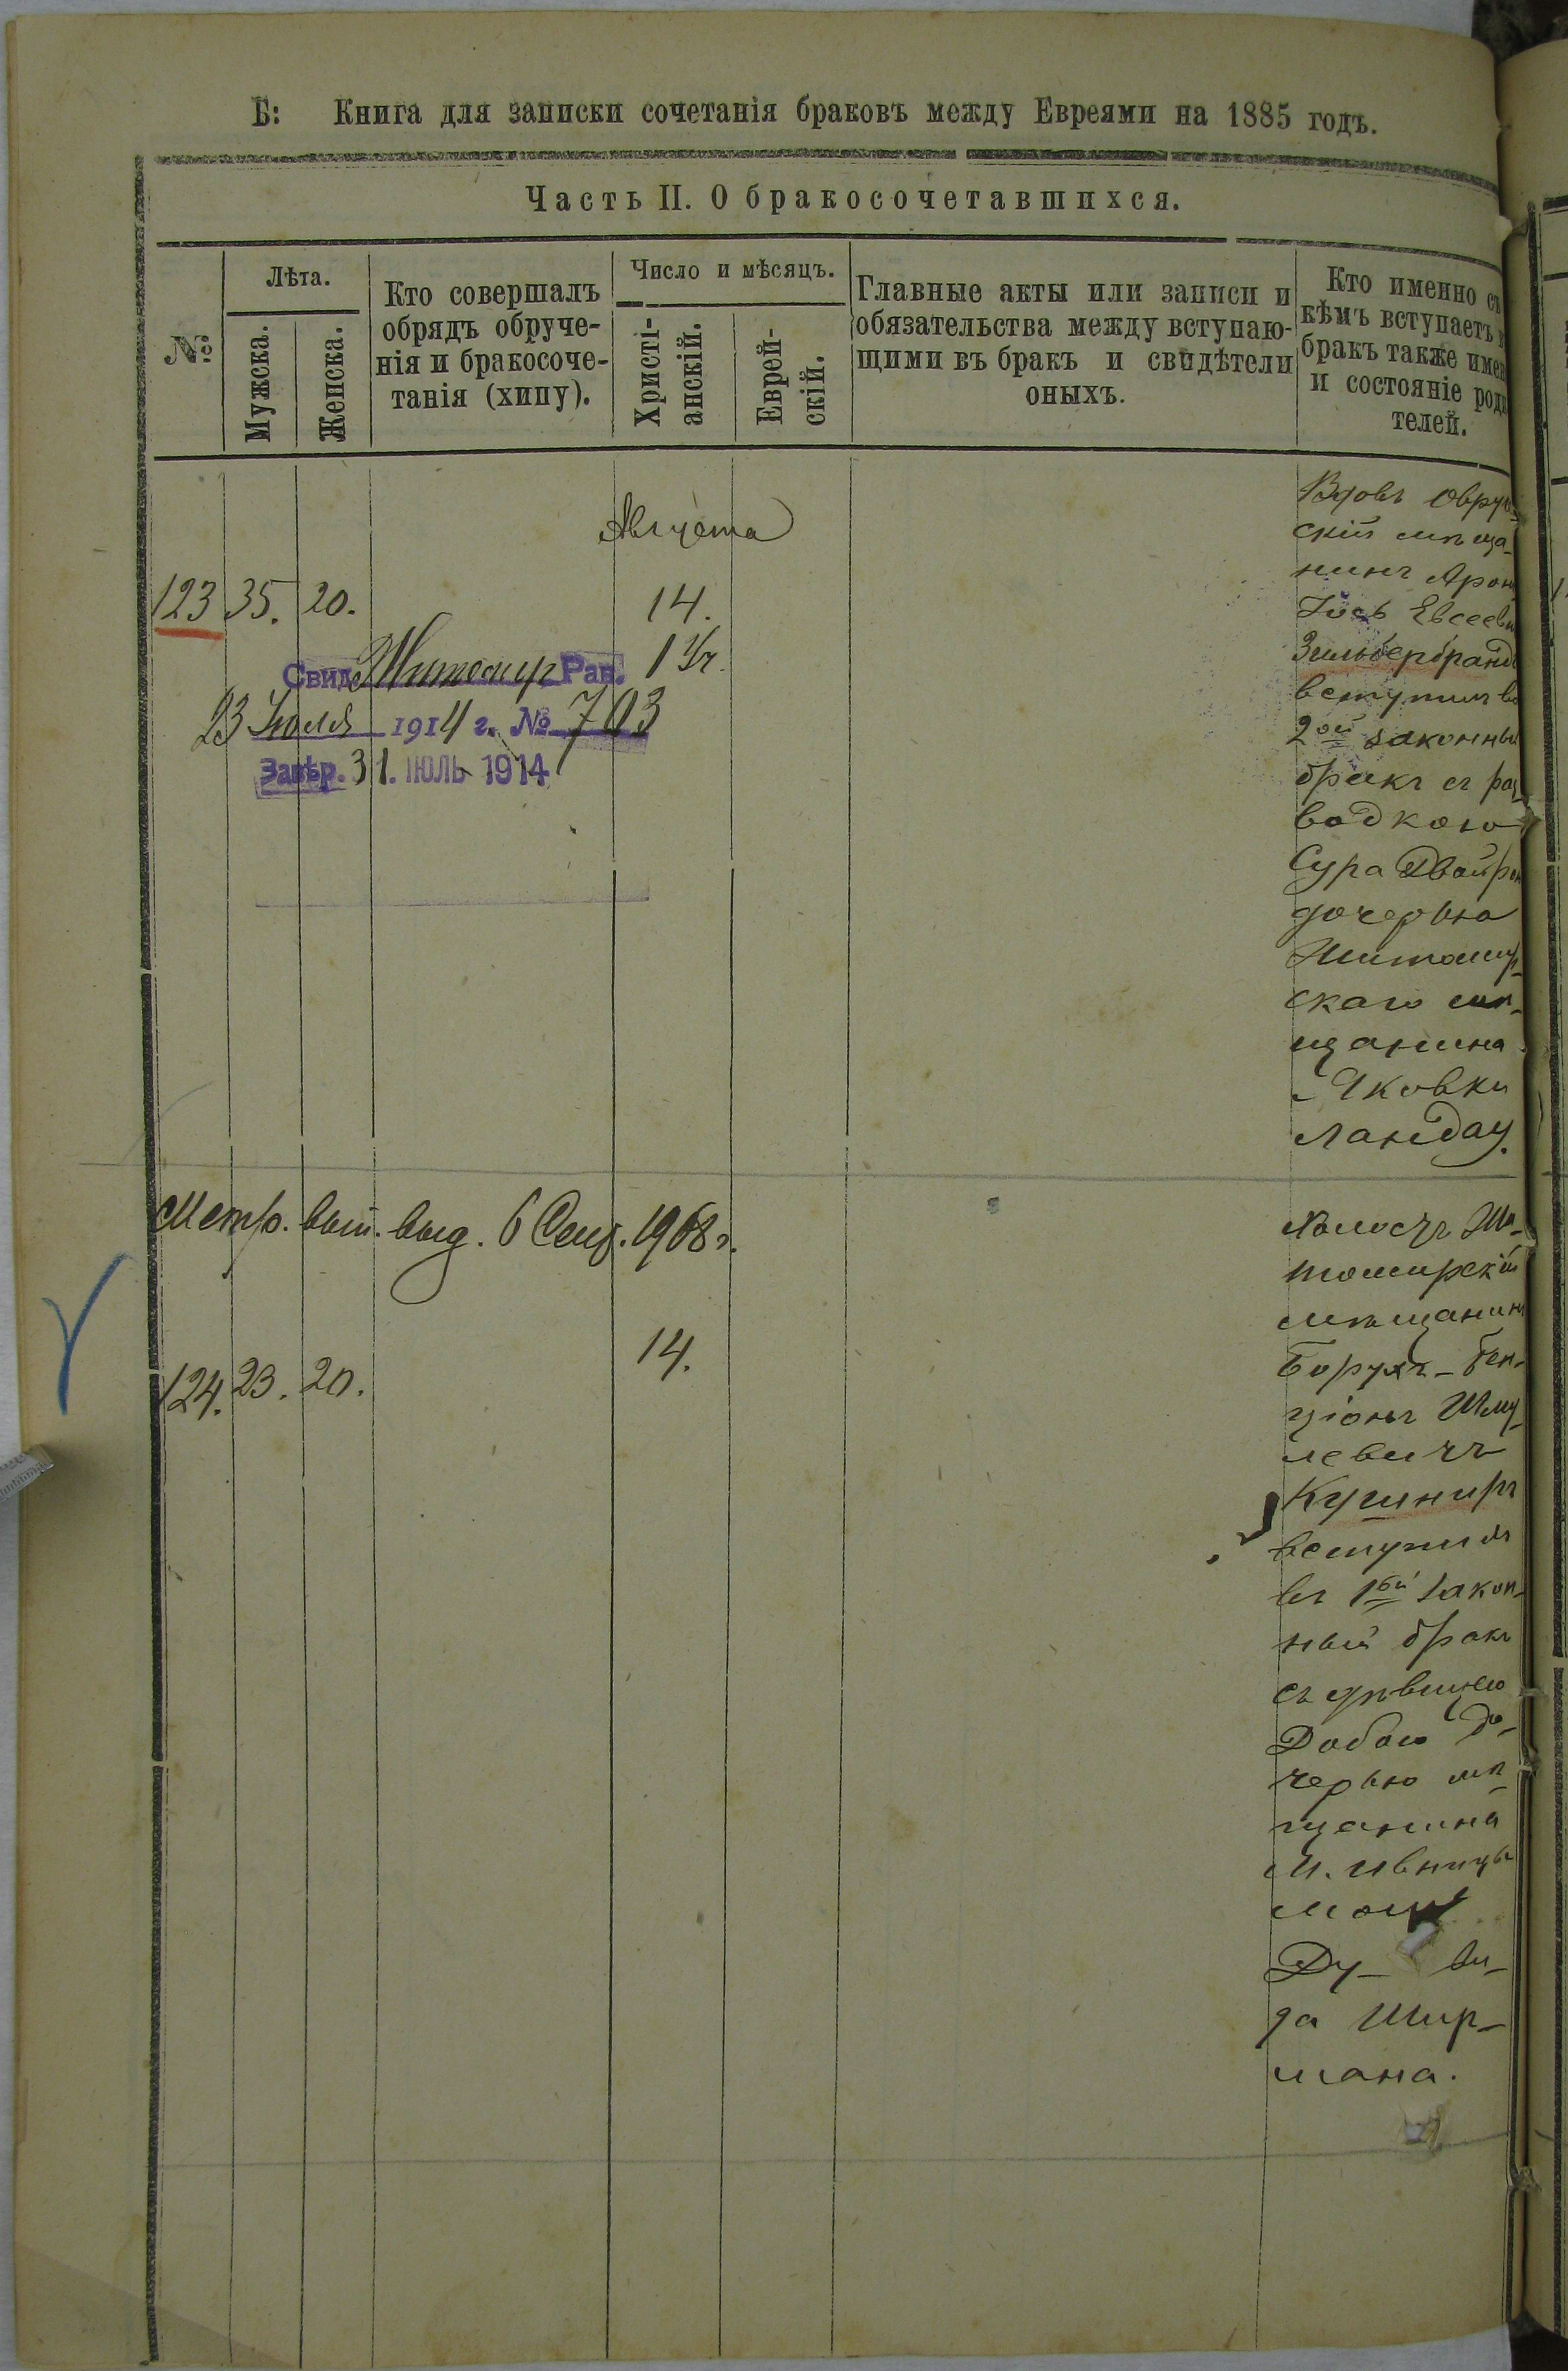 Б: Книга для записки сочетанія браковъ между Евреями на 1885 годъ.
Часть II. О бракосочетавшихся.
№
Лѣта.
Мужска.
Женска.
Кто совершалъ
обрядъ обруче-
нія и бракосоче-
танія (хипу).
Число и мѣсяцъ.
Христі-
анскій.
Еврей-
скій.
Главные акты или записи и
обязательства между вступаю-
щими въ бракъ и свидѣтели
оныхъ.
Кто именно съ
кѣмъ вступаетъ
бракъ также имен
и состояніе роди
телей.
Августа
123 35. 20. 14.
Свид. Житомир Рав.
23 Июля 1914 г. № 703
Завѣр. 31. ІЮЛЬ 1914
Вдовъ Овруч
скій мѣща-
нинъ Арон
Іось Евсеев
Зильбербранд
вступилъ во
2ой законны
бракъ съ раз
водкою
Сура Двойрою
дочерью
Житомир-
скаго мѣ-
щанина
Яковки
Ландау.
Метр. вып. выд. 6 Сент. 1908 г.
124. 23. 20. 14.
Холостъ Жи-
томирскій
мѣщанинъ
Борухъ-Бен-
ціонъ Шму-
левичъ
Кушниръ
вступилъ
въ 1ый закон-
ный бракъ
съ дѣвицею
Добою до-
черью мѣ-
щанина
м. Ивницы
Мош
Ду- ви-
да Шир-
мана.